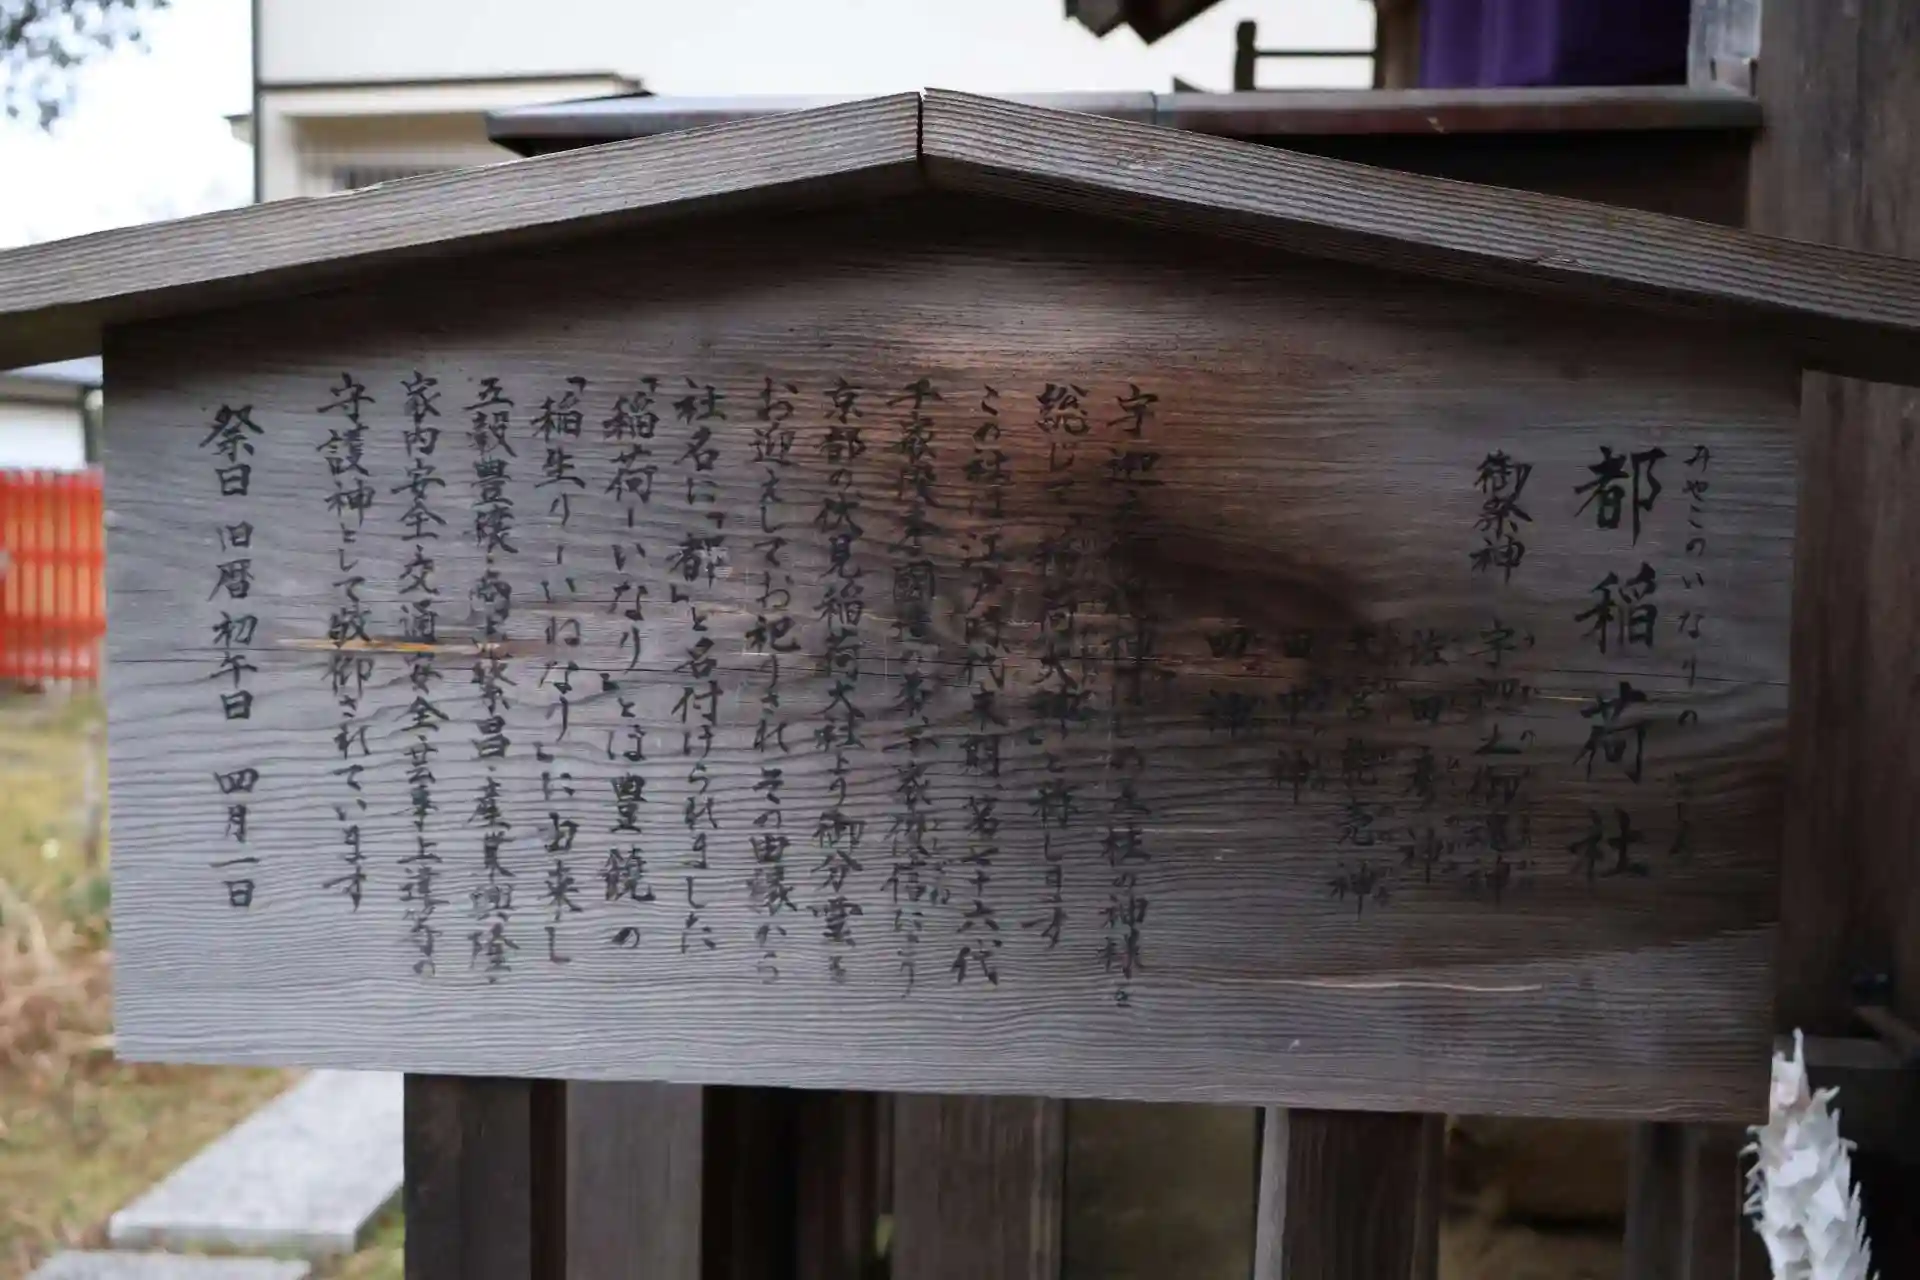 みやこのいなりの
都稲荷社
御祭神 宇迦之御魂神
佐田彦神
大宮能売神
田中神
四
宇迦之御魂神はじめ五柱の神様を
総じて「稲荷大神」と称します
この社は江戸時代末期、第七十六代
京都の伏見稲荷大社より御分霊を
お迎えしてお祀りされその由縁から
社名に「都」と名付けられました
「稲荷ーいなり」とは豊饒の
「稲生りーいねなり」に由来し
五穀豊穣・商売繁昌・産業興隆・
家内安全・交通安全・芸事上達等の
守護神として敬仰されています
祭日 旧暦初午日 四月一日